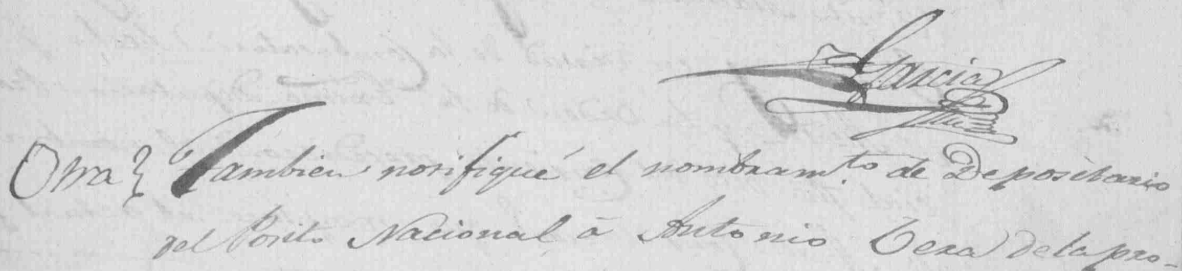 Garcia
Otra } Tambien notifiqué el nombram.to de Depositario
del Posito Nacional á Antonio Vera de la pro-